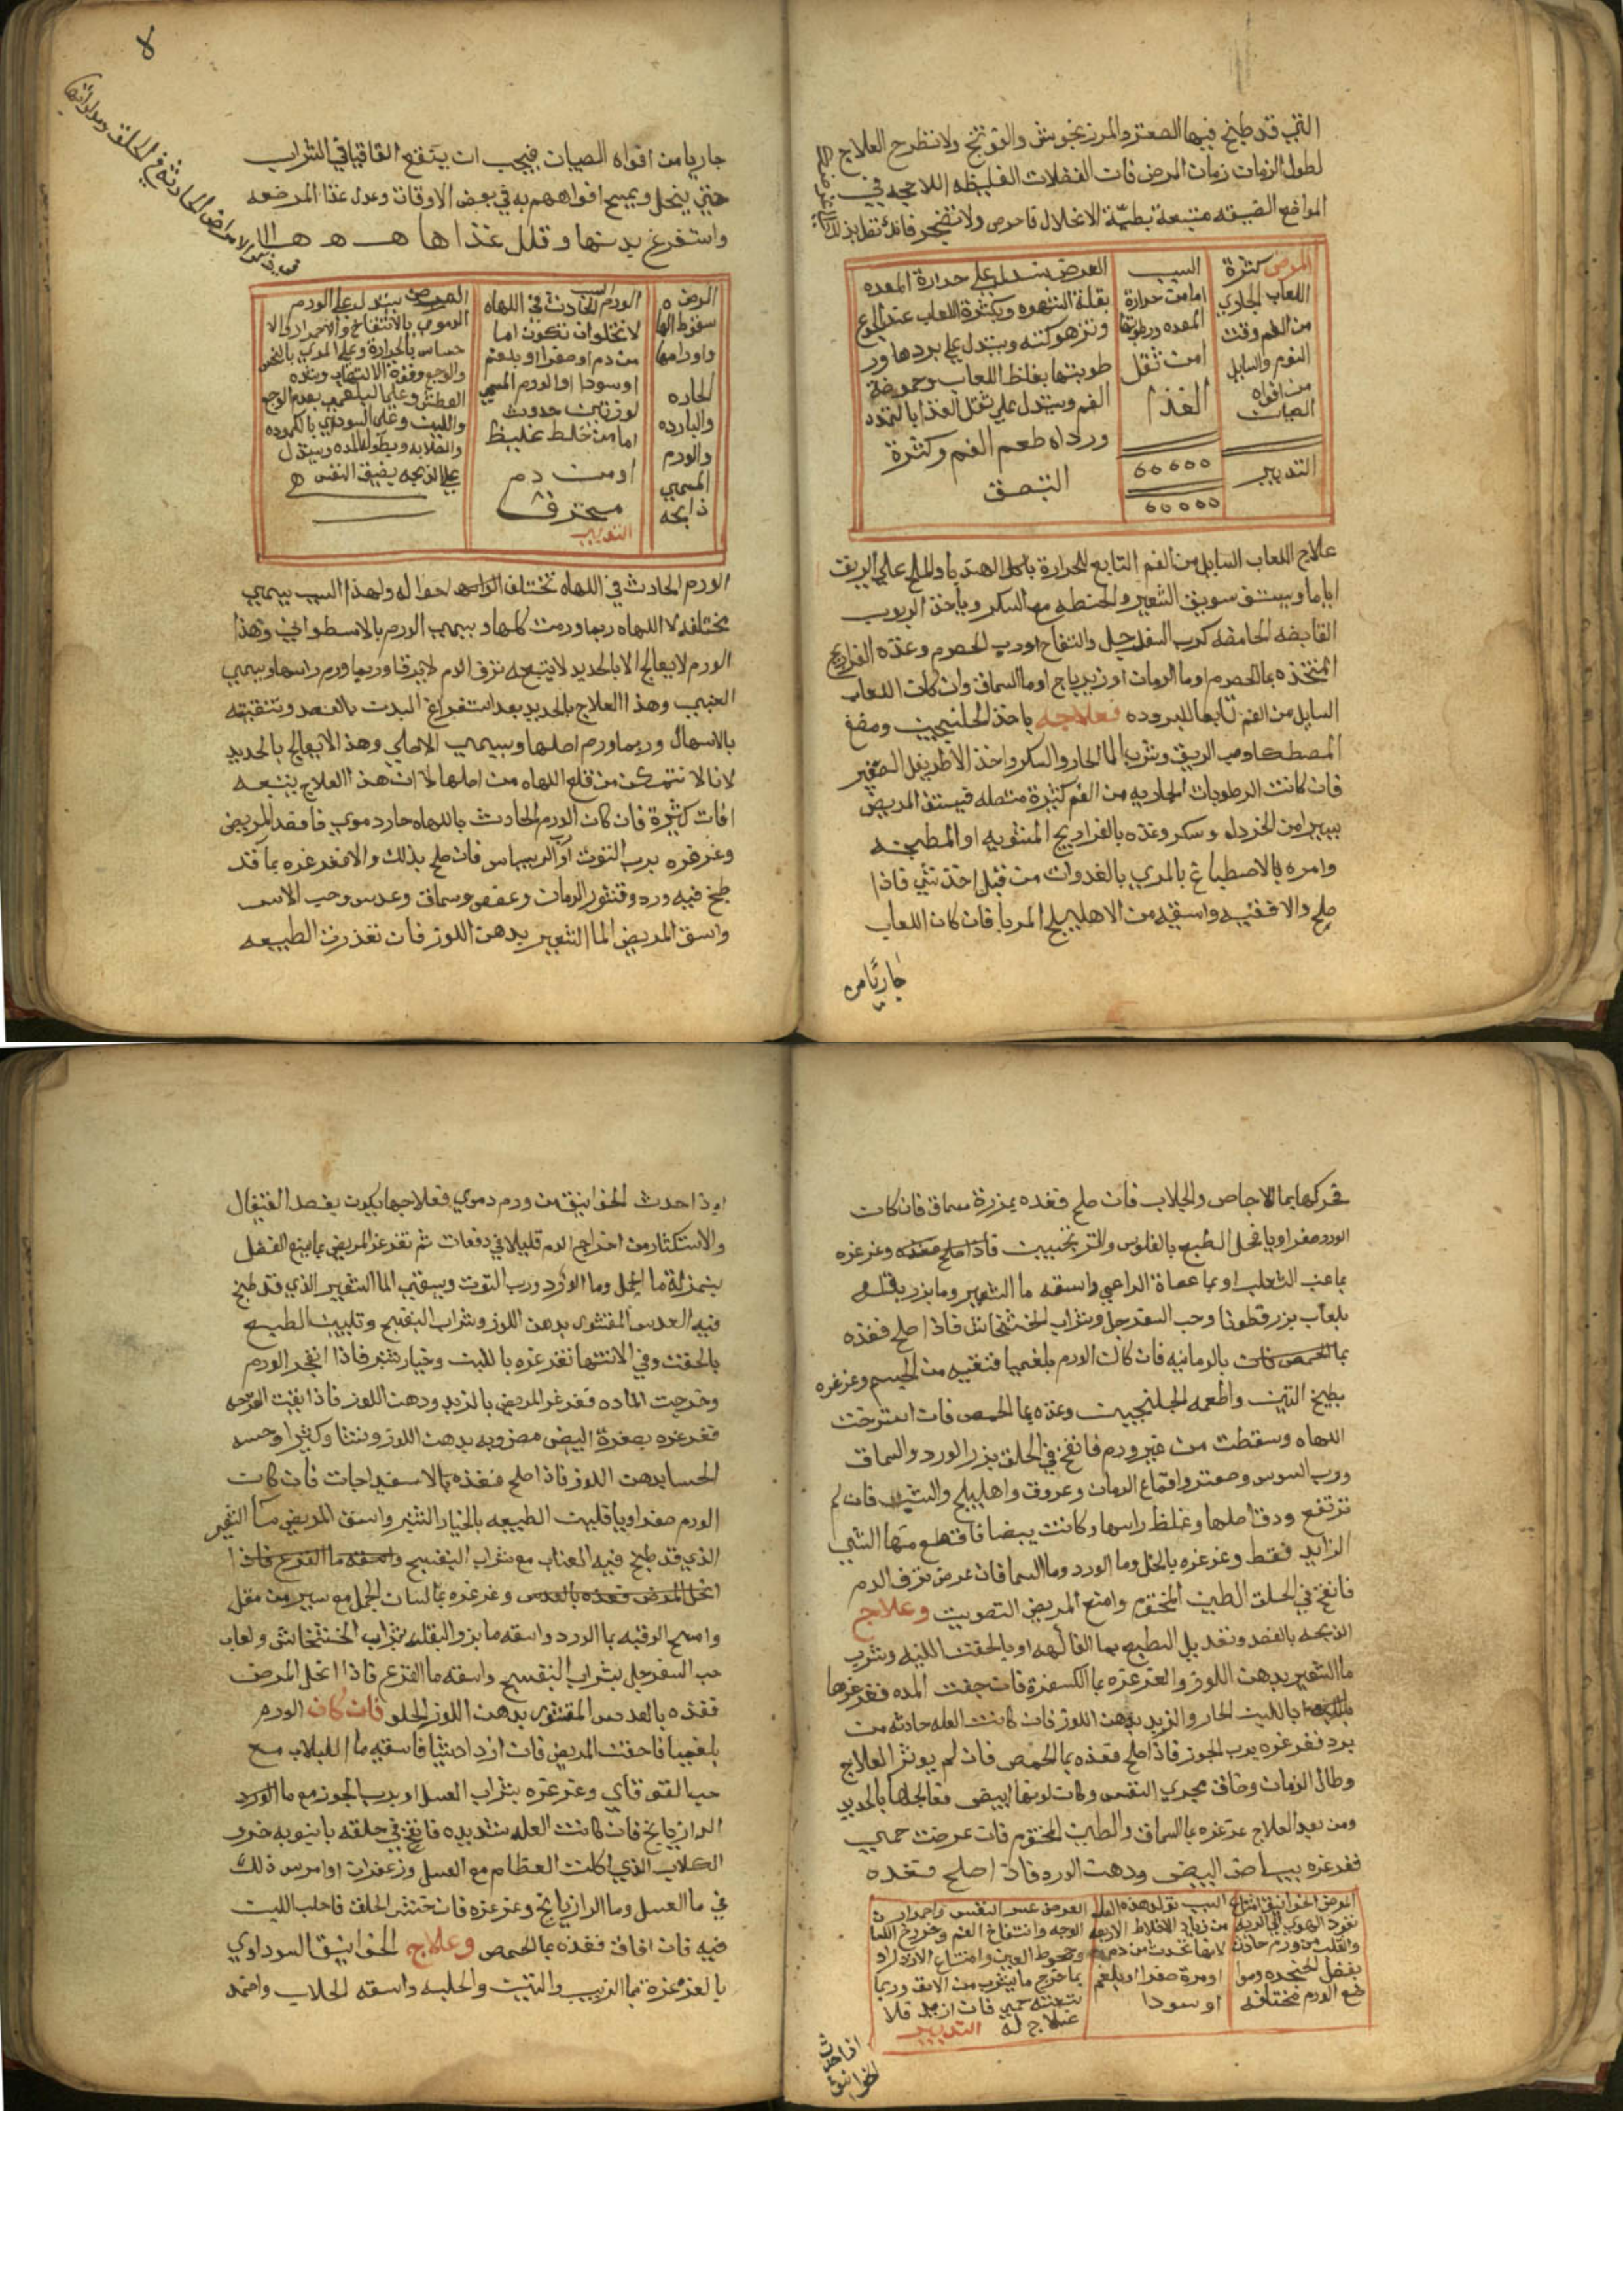 التي قد طبخ فيها الصعتر والمرزنجوش والفوتنج ولا تطرح العلاج
لطول الزمان زمان المرض فان الفضلات الغليظه اللاحجه في
المواضع الضيقه متبعة بطيّة الانحلال فاحرص ولا تضجر فانك
المرض كثرة
اللعاب الجاري
من الفم وقت
النوم والسايل
من افواه
الصبيان
التدبير
السبب
اما من حرارة
المعده ورطوبتها
او من ثقل
الغذا
العرض يستدل على حرارة المعده
بقلة الشهوه وبكثرة اللعاب عند الجوع
ويستدل على بردها ور
طوبتها بغلظ اللعاب وحموضة
الفم ويستدل على ثقل الغذا بالتمدد
ورداه طعم الفم وكثرة
التبصق
علاج اللعاب السايل من الفم التابع للحرارة باكل الهندبا والملح على الريق
اياما ويستف سويق الشعير والحنطه مع السكر وياخذ الربوب
القابضه الحامضه كرب السفرجل والتفاح او رب الحصرم وغذه الفراريج
المتخذه بما الحصرم او ما الرمان او زيرباج او ما السماق وان كان اللعاب
السايل من الفم تابعا للبروده فعلاجه ياخذ الجلنجبين ومضغ
المصطكا وعلى الريق وشرب الما الحار والسكر واخذ الاطريفل الصغير
فان كانت الرطوبات الجاريه من الفم كثيرة متصله فيستف المريض
يسيرا من الخردل وسكر وغذه بالفراريج المشويه او المطجنه
وامره بالاصطباغ بالمري بالغدوات من قبل اخذ شي فاذا
صلح والا فقيه واسقيه من الاهليلج المربا فان كان اللعاب
جاريا من
جاريا من افواه الصبيان فيجب ان ينقع القاقيا في الشراب
حتى ينحل ويمسح افواههم به في بعض الاوقات وعدل غذا المرضعه
واستفرغ بدنها وقلل غذاها
الامراض الحادثة في الحلق ومداواتها
المرض
سقوط اللها
واورامها
الحاره
والبارده
والورم
المسمى
ذابحه
السبب
الورم الحادث في اللهاه
لا تخلوان تكون اما
من دم او صفرا او بلغم
او سودا او الورم المسمى
لوزتين حدوث
اما من خلط غليظ
او من دم
محترق
التدبير
العرض يستدل على الورم
الدموي بالانتفاخ والاحمرار والا
حساس بالحرارة وعلى المري بالنخس
والوجع وقوة الالتهاب وشده
العطش وعلى البلغمي بعدم الوجع
واللين وعلى السوداوي بالكموده
والصلابه وبطول المده ويستدل
على الذبحه بضيق النفس
الورم الحادث في اللهاه تختلف احواله ولهذا السبب يسمى
مختلفه لا اللهاه ربما ورمت كلها ويسمى الورم بالاسطواني وهذا
الورم لا يعالج الا بالحديد لا يتبعه نزف الدم وربما ورم راسها ويسمى
العنبي وهذا العلاج بالحديد بعد استفراغ البدن بالفصد وتنقيته
بالاسهال وربما ورم اصلها ويسمى الاصلي وهذ الا يعالج بالحديد
لانا لا نتمكن من قلع اللهاه من اصلها لا ان هذا العلاج يتبعه
افات كثيرة فان كان الورم الحادث باللهاه حار دموي فافصد المريض
وغرغره برب التوت او الريباس فان صلح بذلك والا فغرغره بما قد
طبخ فيه ورد وقشور الرمان وعفص وسماق وعدس وحب الاس
واسق المريض الما الشعير بدهن اللوز فان تعذرت الطبيعه
فحركها بما الاجاص والجلاب فان صلح فغذه بمزرة سماق فان كان
الورد صفراويا فحل الطبع بالفلوس والترنجبين فاذا صلح فغذه وغرغره
بما عنب الثعلب او بما عصاة الراعي واسقه ما الشعير وما بزر بقله
بلعاب بزر قطونا وحب السفرجل وشراب الخشخاش فاذا صلح فغذه
بالرمانيه فان كان الورم بلغميا فنقيه من الجسم وغرغره
بطبيخ التين واطعمه الجلنجبين وغذه بما الحمص فان استرخت
اللهاه وسقطت من غير ورم فانفخ في الحلق بزر الورد والسماق
ورب السوس وصعتر واقماع الرمان وعروق واهليلج والشب فان لم
ترتفع ودق اصلها وغلظ راسها وكانت بيضا فاقطع منها الشي
الزايد فقط وغرغره بالخل وما الورد وما السماق فان عرض نزف الدم
فانفخ في الحلق الطين المختوم وامنع المريض التصويت وعلاج
الذبحه بالفصد وتعديل الطبع بما الفاكهه او بالحقن اللينه وشرب
ما الشعير بدهن اللوز والغرغره بما الكسفرة فان جفت المده فغرغرها
باللبن الحار والزبد بدهن اللوز فان كانت العله حادثه من
برد فغرغره برب الجوز فاذا صلح فغذه بما الحمص فان لم يوثر العلاج
وطال الزمان وضاق مجرى النفس وكان لونها ابيض فعالجها بالحديد
ومن بعد العلاج غرغره بما السماق والطين المختوم فان عرضت حمى
فغرغره ببياض البيض ودهن الورد فاذا صلح فغذه
المرض الخوانيق امتناع
نفود الهوى الى الريه
والقلب من ورم حادث
بفضل الحنجره وموا
ضع الورم مختلفه
السبب تولد هذه العله
من زياده الاخلاط الاربعه
لانها تحدث من دم
او مرة صفرا او بلغم
او سودا
العرض عسر النفس واحمرار
الوجه وانتفاخ الفم وخروج اللعا
وجحوظ العين وامتناع الازدراد
بما خرج ما يشرب من الانف وربما
تتبعه حمى فان ازبد فلا
علاج له التدبير
اذا حدث
الخوانيق
اذا حدث الخوانيق من ورم دموي فعلاجها يكون بفصد القيفال
والاستكثار من اخراج الدم قليلا في دفعات ثم تغرغر المريض بما يمنع الفضل
بمنزلة ما الخل وما الورد ورب التوت ويسقى الما الشعير الذي قد طبخ
فيه العدس المقشور بدهن اللوز وشراب البنفسج وتليين الطبع
بالحقن وفي الانتها تغرغره باللبن وخيار شنبر فاذا انفجر الورم
وخرجت الماده فغرغر المريض بالزبد ودهن اللوز فاذا نقيت القرحه
فغرغره بصفرة البيض مضروبه بدهن اللوز ونشا وكثيرا وحسه
الحسا بدهن اللوز فاذا صلح فغذه بالاسفيداجات فان كان
الورم صفراويا فلين الطبيعه بالخيار الشنبر واسق المريض ما الشعير
الذي قد طبخ فيه العناب مع شراب البنفسج واسقه ما القرع فاذا
انحل المرض فغذه بالعدس وغرغره بما لسان الحمل مع يسير من مقل
وامسح الرقبه بما الورد واسقه ما بزر البقله بشراب الخشخاش ولعاب
حب السفرجل بشراب البنفسج واسقه ما القرع فاذا انحل المرض
فغذه بالعدس المقشور بدهن اللوز الحلو فان كان الورم
بلغميا فاحقن المريض فان ازداد شيا فاسقيه ما اللبلاب مع
حب القوقاي وغرغره بشراب العسل او برب الجوز مع ما الورد
الرازيانج فان كانت العله شديده فانفخ في حلقه بانبوبه خرو
الكلاب الذي اكلت العظام مع العسل وزعفران او امرس ذلك
في ما العسل وما الرازيانج وغرغره فان خشن الحلق فاحلب اللبن
فيه فان افاق فغذه بما الحمص وعلاج الخوانيق السوداوي
بالغرغرة بما الزبيب والتين والحلبه واسقه الجلاب واضمد